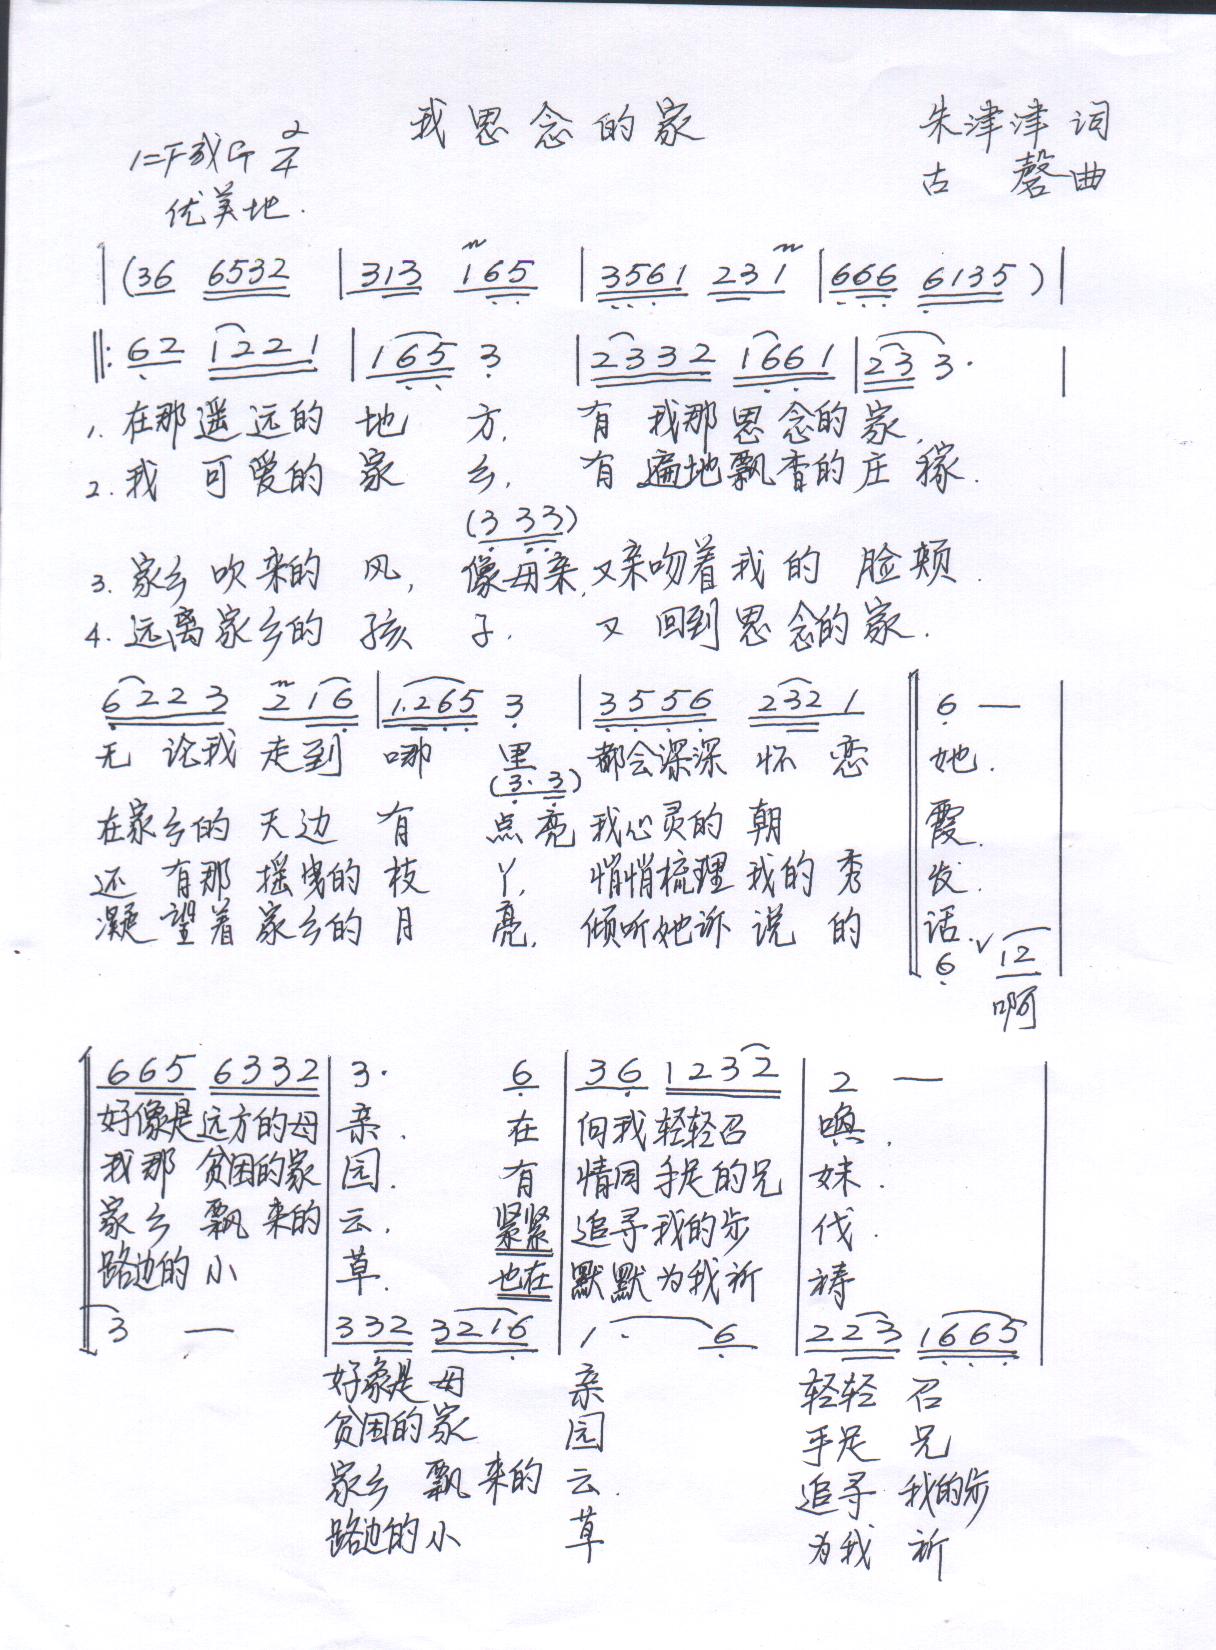 我思念的家
朱津津 词
1=F或G 2/4
古 磬 曲
优美地.
|(36 6532 |313 165 |3561 231 |666 6135)|
‖: 62 1221 |165 3 |2332 1661 |23 3· |
1. 在那遥远的地方, 有我那思念的家,
2. 我可爱的家乡, 有遍地飘香的庄稼.
(3 33)
3. 家乡吹来的风, 像母亲,又亲吻着我的脸颊.
4. 远离家乡的孩子. 又回到思念的家.
6223 216 |1.265 3 |3556 232 1 ‖ 6 — |
无论我走到哪里 都会深深怀恋 她.
(3· 3)
在家乡的天边有点亮我心灵的朝 霞.
还有那摇曳的枝丫, 悄悄梳理我的秀 发.
凝望着家乡的月亮, 倾听她诉说的 话.
6 ∨ 12
啊
665 6332 |3· 6 |36 1232 |2 — |
好像是远方的母 亲. 在 向我轻轻召 唤.
我那贫困的家 园. 有 情同手足的兄 妹.
家乡飘来的 云. 紧紧 追寻我的步 伐.
路边的小 草. 也在 默默为我祈 祷
3 — |332 3216 |1· 6 |223 1665 |
好象是母 亲 轻轻召
贫困的家 园 手足兄
家乡飘来的 云. 追寻我的步
路边的小 草 为我祈